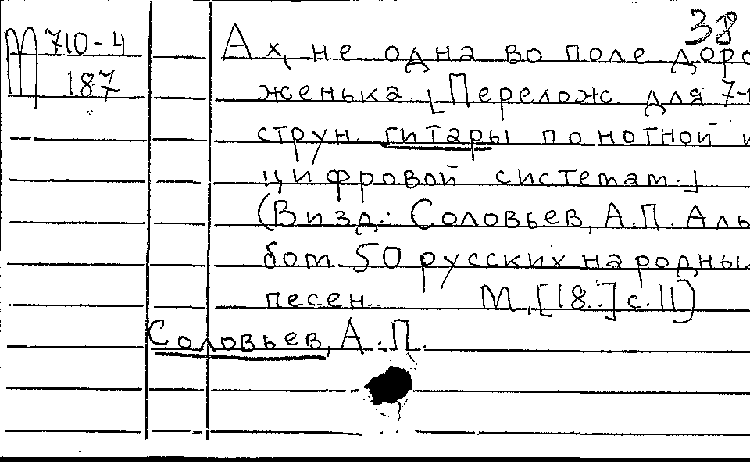 38
М 710-4
187
Ах, не одна во поле доро
женька [Перелож. для 7-
струн. гитары по нотной и
цифровой системам.]
(В изд.: Соловьев, А.П. Аль
бом 50 русских народны
песен. М., [18..] с. 11)
Соловьев, А.П.